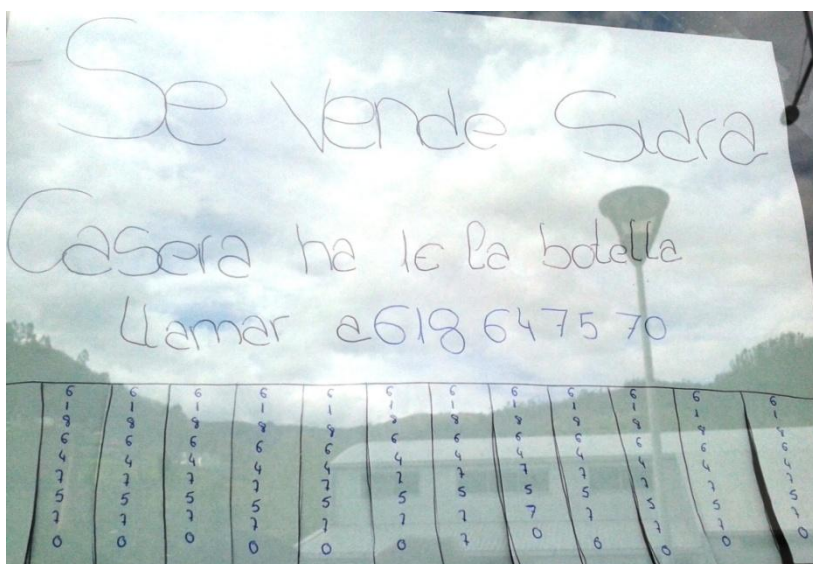 Se Vende Sidra
Casera ha 1€ la botella
Llamar a 618 647570
618647570
618647570
618647570
618647570
618647570
618647570
618647577
618647570
618647570
618647570
618647570
618647570